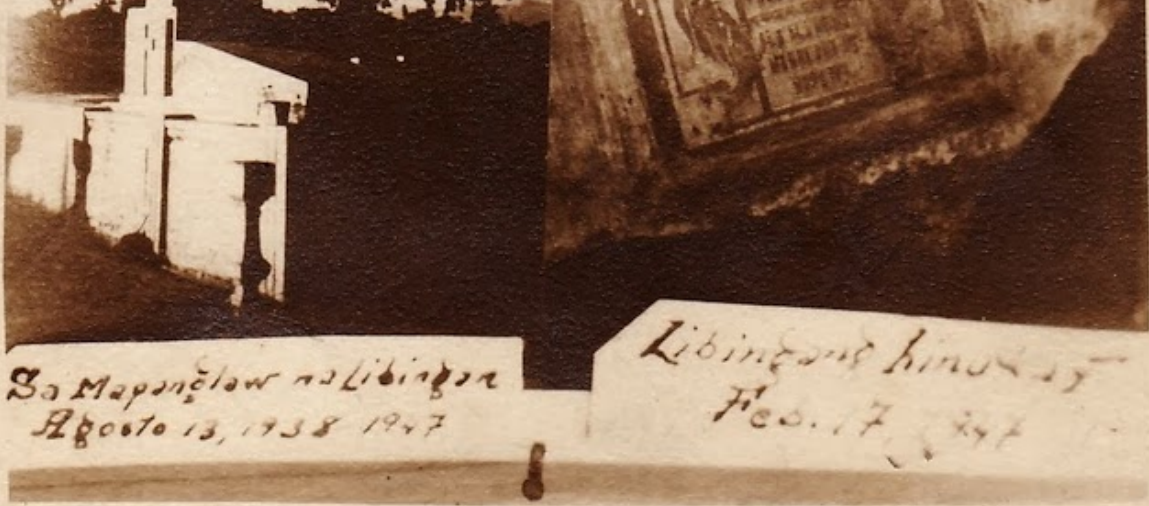 Sa Mapanglaw na Libingan
Agosto 13, 1938 1947
Libingang hinukay
Feb. 17, 1947